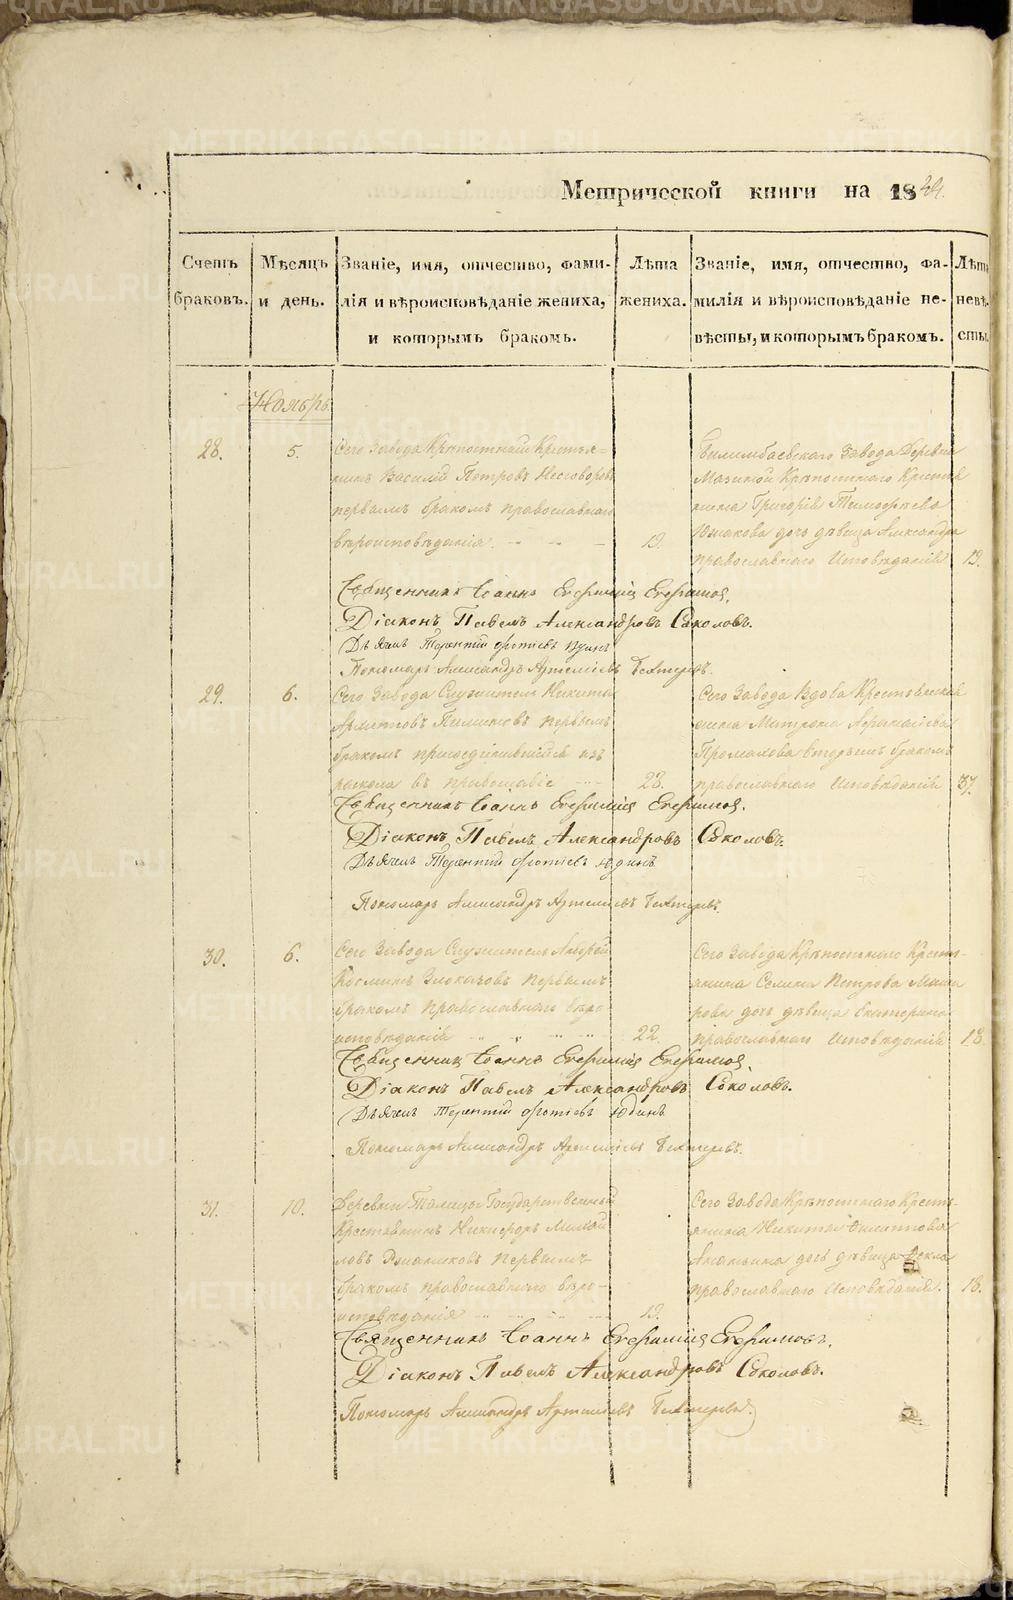 Метрической книги на 1844.
Счетъ браковъ.
Мѣсяцъ и день.
Званіе, имя, отчество, фамилія и вѣроисповѣданіе жениха, и которымъ бракомъ.
Лѣта жениха.
Званіе, имя, отчество, фамилія и вѣроисповѣданіе невѣсты, и которымъ бракомъ.
Лѣта невѣсты.
Ноябрь
28.
5.
Сего Завода Крѣпостный Крестья-
нинъ Василій Петровъ
первымъ бракомъ православнаго
вѣроисповѣданія.
19.
Билимбаевскаго Завода Деревни
Мазиной Крѣпостнаго Крестья
нина Григорія Тимофѣева
дочь дѣвица Александра
православнаго Исповѣданія
19.
Священникъ Іоаннъ Евфиміевъ Евфимовъ.
Діаконъ Павелъ Александровъ Соколовъ.
Дьячекъ Терентій Фотіевъ Юдинъ
Пономарь Александръ Артеміевъ Бехтеревъ.
29.
6.
Сего Завода Служитель Никита
первымъ
бракомъ присоединившійся изъ
раскола въ православіе
23.
Сего Завода Вдова Крестьянская
жена Матрона Афанасіева
вторымъ бракомъ
православнаго Исповѣданія
37.
Священникъ Іоаннъ Евфиміевъ Евфимовъ.
Діаконъ Павелъ Александровъ Соколовъ.
Дьячекъ Терентій Фотіевъ Юдинъ
Пономарь Александръ Артеміевъ Бехтеревъ.
30.
6.
Сего Завода Служитель Андрей
Косминъ Злоказовъ первымъ
бракомъ Православнаго вѣро
исповѣданія
22.
Сего Завода Крѣпостнаго Кресть-
янина Петрова
дочь дѣвица Екатерина
православнаго Исповѣданія
18.
Священникъ Іоаннъ Евфиміевъ Евфимовъ.
Діаконъ Павелъ Александровъ Соколовъ.
Дьячекъ Терентій Фотіевъ Юдинъ
Пономарь Александръ Артеміевъ Бехтеревъ.
31.
10.
Деревни Талицы Государственный
Крестьянинъ Никифоръ
первымъ
бракомъ православнаго вѣро-
исповѣданія
19.
Сего Завода Крѣпостнаго Кресть-
янина Никиты Филиппова
Ананьина дочь дѣвица Фекла
православнаго Исповѣданія.
18.
Священникъ Іоаннъ Евфиміевъ Евфимовъ.
Діаконъ Павелъ Александровъ Соколовъ.
Пономарь Александръ Артеміевъ Бехтеревъ.
METRIKI.GASO-URAL.RU